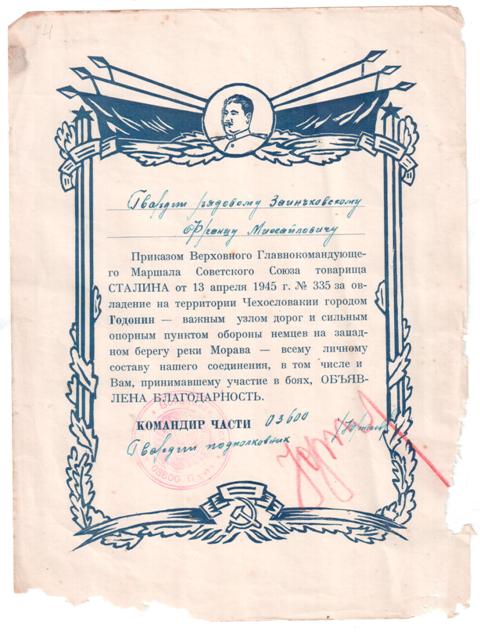 Гвардии рядовому Заиньковскому
Францу Михайловичу
Приказом Верховного Главнокомандующе-
го Маршала Советского Союза товарища
СТАЛИНА от 13 апреля 1945 г. № 335 за ов-
ладение на территории Чехословакии городом
Годонин — важным узлом дорог и сильным
опорным пунктом обороны немцев на запад-
ном берегу реки Морава — всему личному
составу нашего соединения, в том числе и
Вам, принимавшему участие в боях, ОБЪЯВ-
ЛЕНА БЛАГОДАРНОСТЬ.
КОМАНДИР ЧАСТИ 03600
Гвардии подполковник